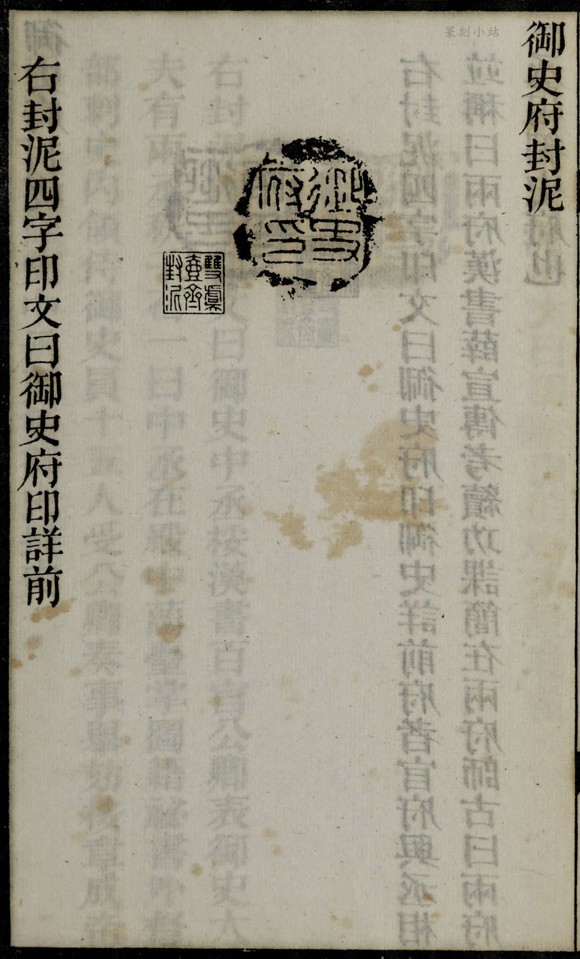 篆刻小站
御史府封泥
御史府印
雙虞
壺齋
封泥
右封泥四字印文曰御史府印詳前